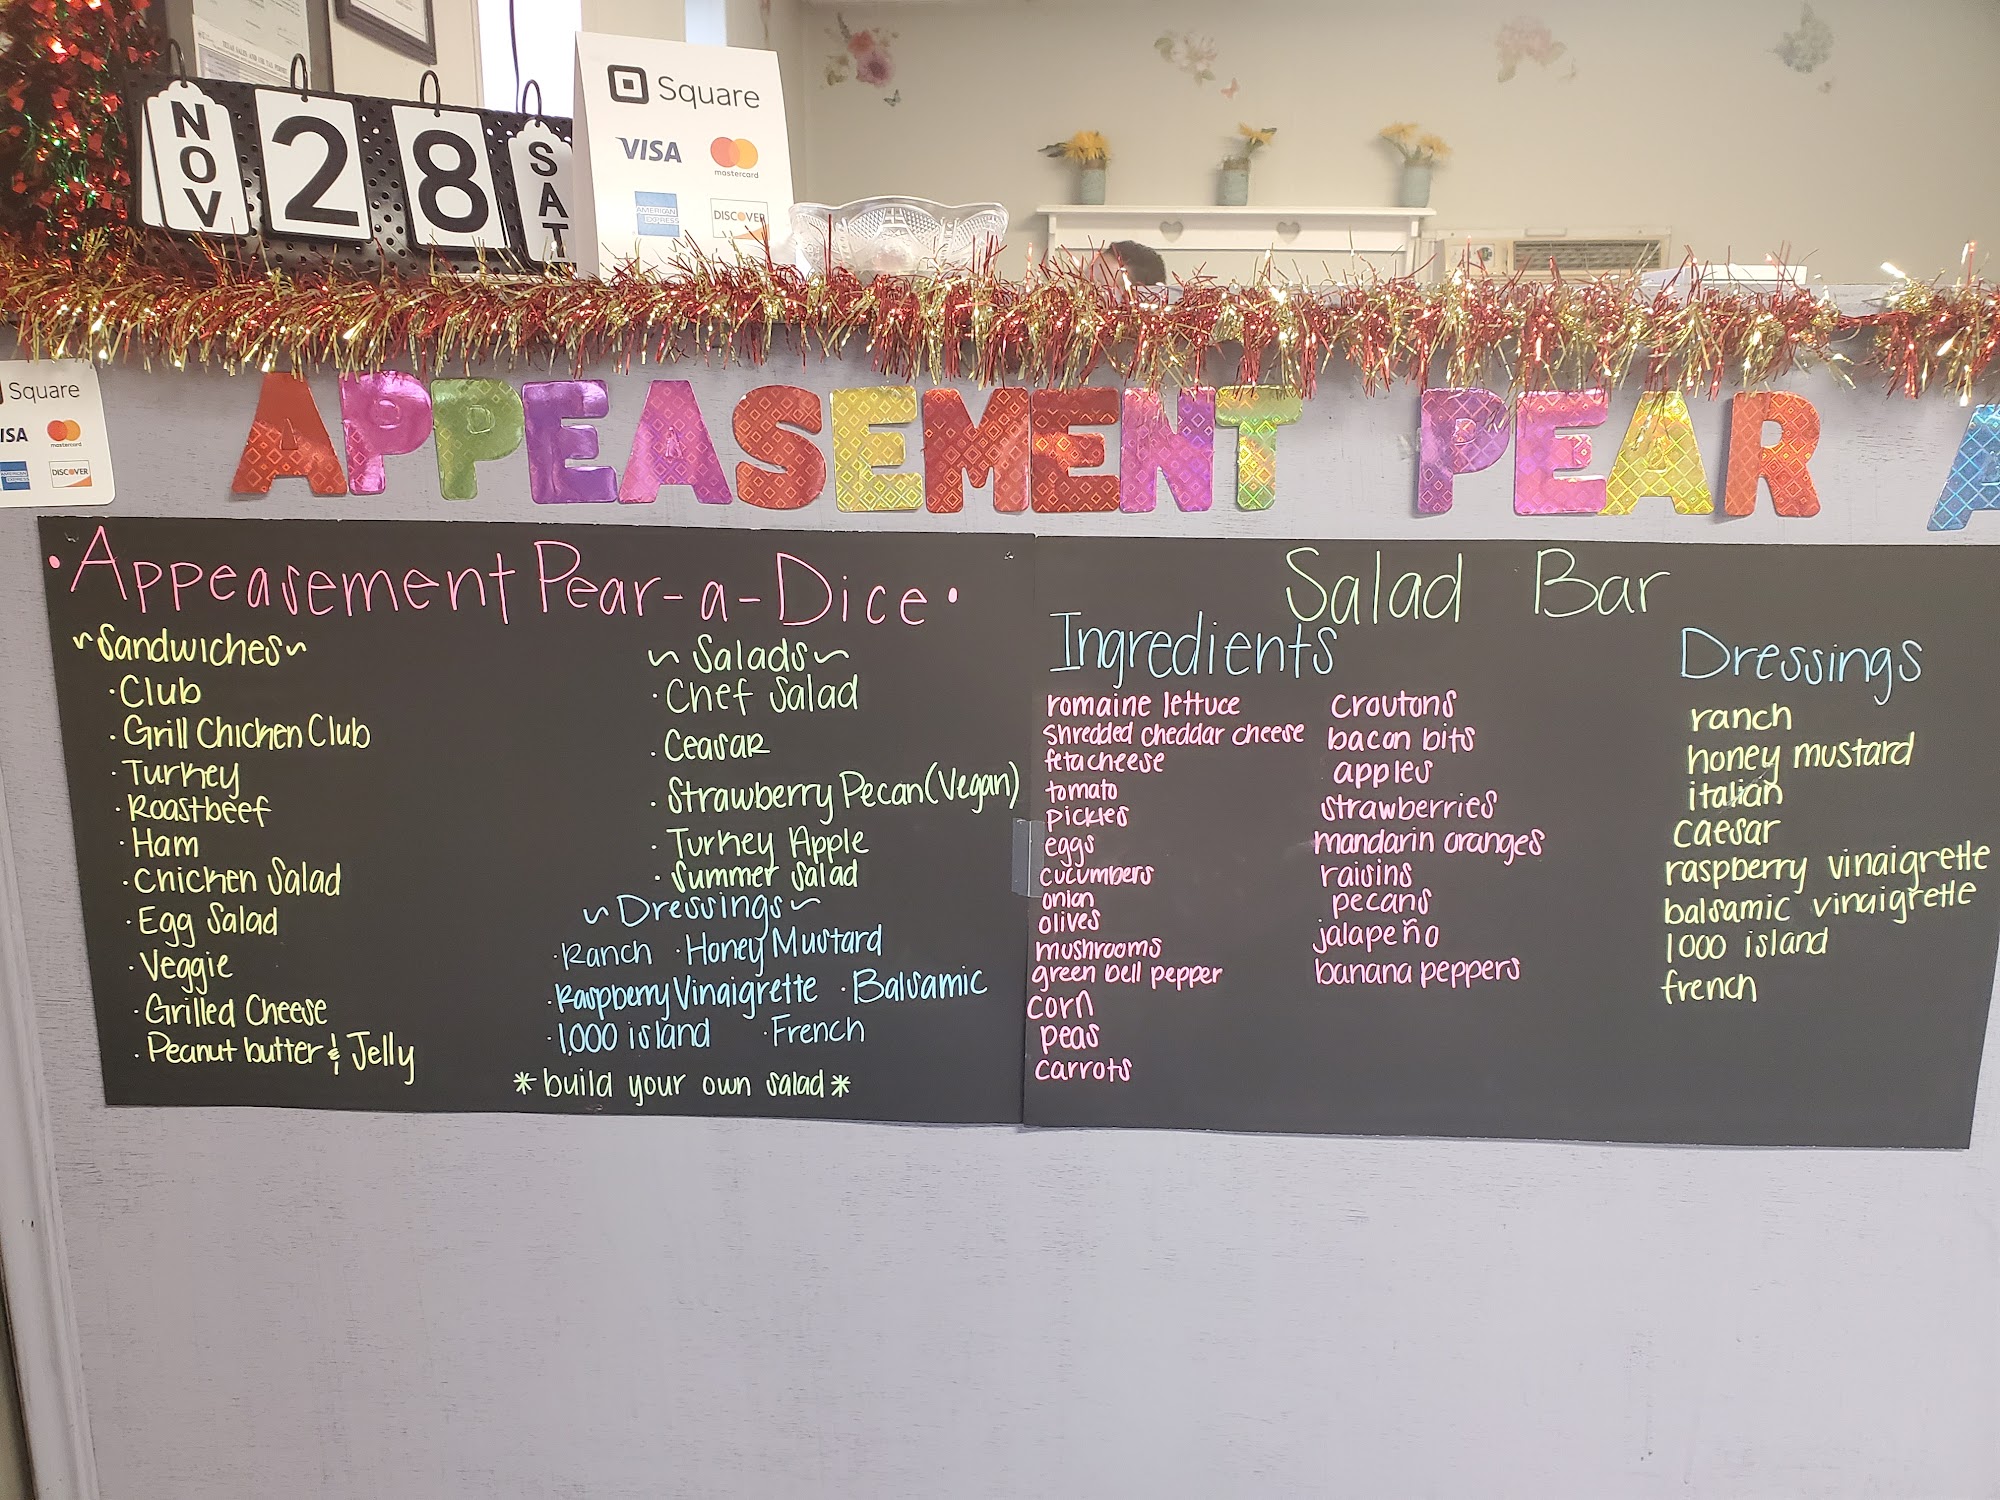 NOV 28 SAT
Square
VISA mastercard
AMERICAN EXPRESS DISCOVER
Square
ISA mastercard
AMERICAN EXPRESS DISCOVER
APPEASEMENT PEAR A
·Appeasement Pear-a-Dice·
~Sandwiches~
·Club
·Grill Chicken Club
·Turkey
·Roastbeef
·Ham
·Chicken Salad
·Egg Salad
·Veggie
·Grilled Cheese
·Peanut butter & Jelly
~Salads~
·Chef Salad
·Ceasar
·Strawberry Pecan (Vegan)
·Turkey Apple
·Summer Salad
~Dressings~
·Ranch ·Honey Mustard
·Raspberry Vinaigrette ·Balsamic
·1,000 island ·French
*build your own salad*
Salad Bar
Ingredients
romaine lettuce
shredded cheddar cheese
feta cheese
tomato
pickles
eggs
cucumbers
onion
olives
mushrooms
green bell pepper
corn
peas
carrots
croutons
bacon bits
apples
strawberries
mandarin oranges
raisins
pecans
jalapeño
banana peppers
Dressings
ranch
honey mustard
italian
caesar
raspberry vinaigrette
balsamic vinaigrette
1000 island
french